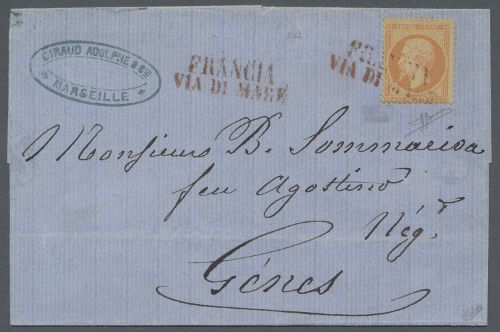 GIRAUD ADOLPHE & Cie
MARSEILLE
FRANCIA
VIA DI MARE
FRANCIA
VIA DI
EMPIRE FRANC
Monsieur B. Sommariva
feu Agostino
Nég.t
Gênes